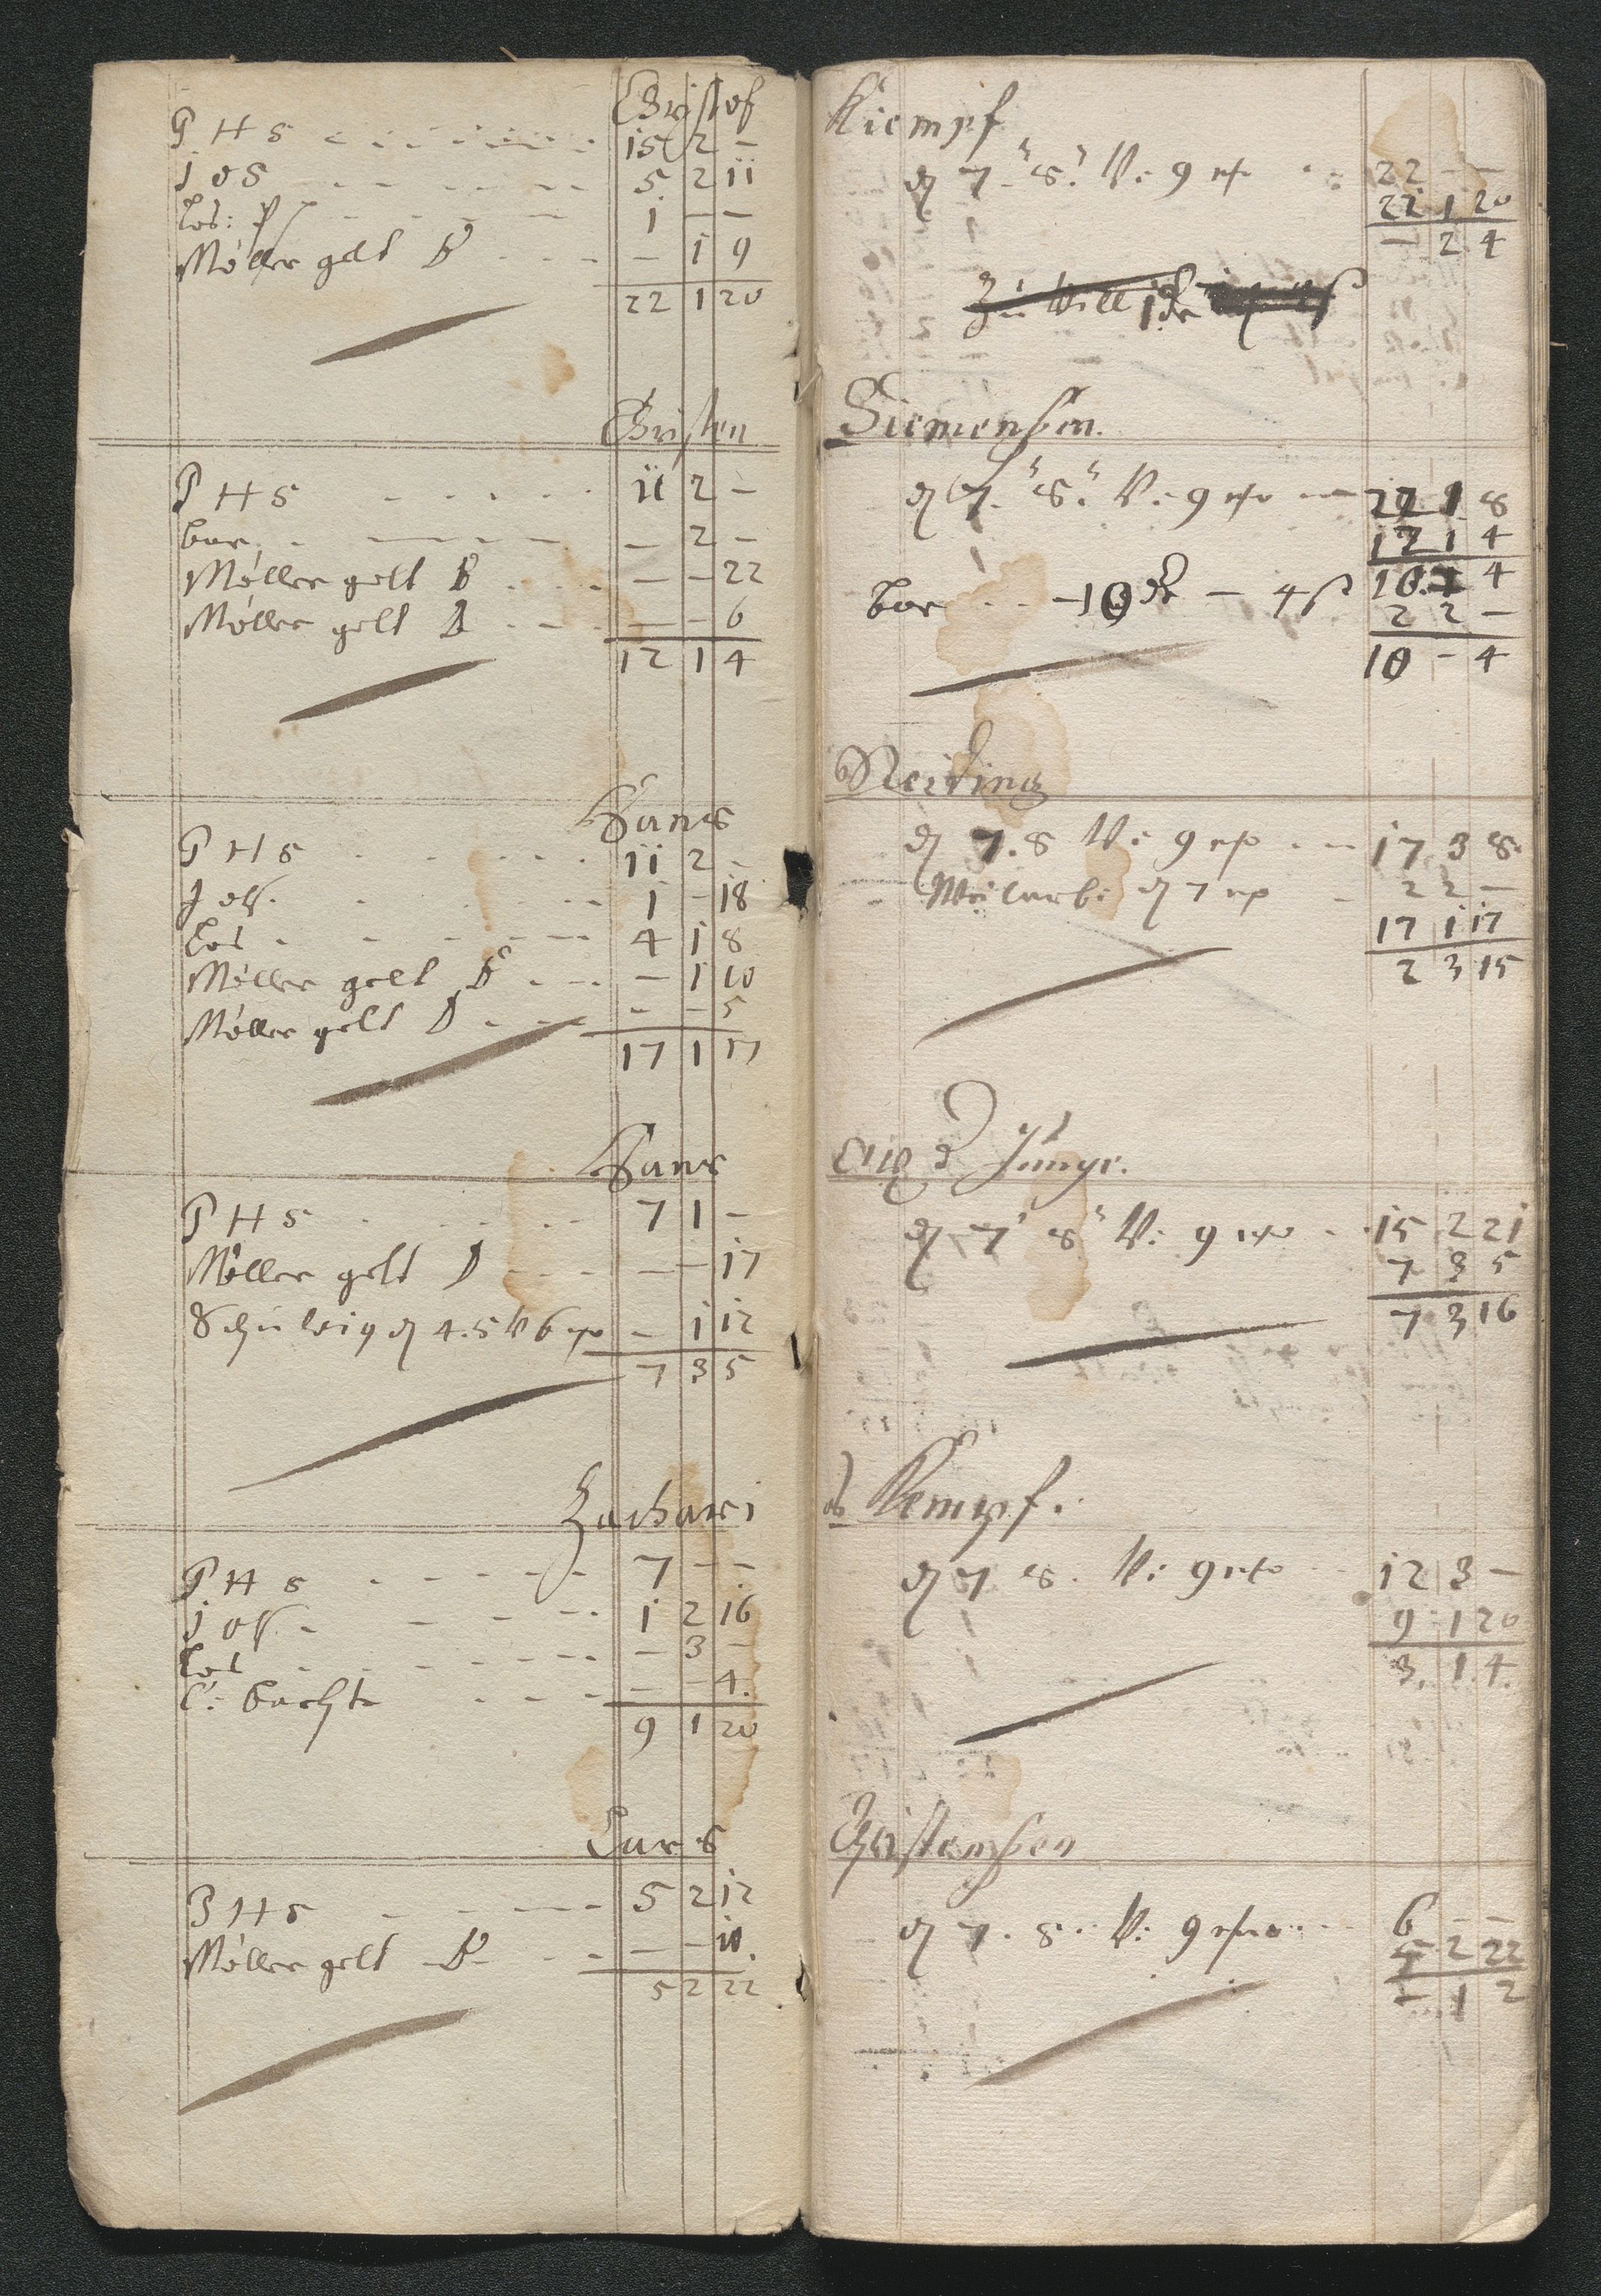 Christof
P H S 15 2 -
J o S 5 2 11
Cos: 1 - -
Møller gelt B - 1 9
22 1 20
Christen
P H S 11 2 -
bar - 2 -
Møller gelt B - - 22
Møller gelt D - - 6
12 1 4
Hans
P H S 11 2 -
Jos. 1 - 18
Cos 4 1 8
Møller gelt B - 1 10
Møller gelt D - - 5
17 1 17
Hans
P H S 7 1 -
Møller gelt D - - 17
4. 5 V 6 - 1 12
7 3 5
Zachari
P H S 7 - -
Jos. 1 2 16
Cos - 3 -
- - 4.
9 1 20
Lars
P H S 5 2 12
Møller gelt B - - 10.
5 2 22
Kiempf
7. 8. V: 9 22 - -
22 1 20
- 2 4
Zu
Siemensen.
7. 8. V: 9 22 1 8
12 1 4
bar 10 - 4 ß 10. 4
2 2 -
10 - 4
Neiding
7. 8 V: 9 17 3 8.
7 2 2 -
17 1 17
2 3 15
Junge.
7 8 V: 9 15 2 21
7 3 5
7 3 16
Kempf.
7 8. V: 9 12 3 -
9 1 20
3. 1. 4.
Christensen
7. 8. V: 9 6 - -
5 2 22
- 1 2